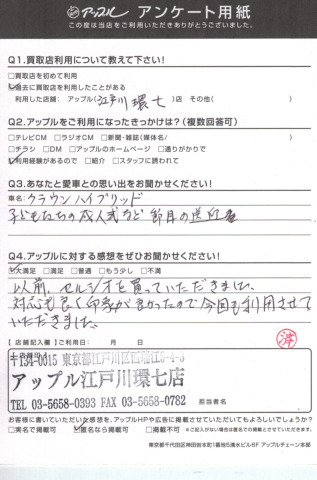 アップル アンケート用紙
この度は当店をご利用いただきありがとうございました。
Q1.買取店利用について教えて下さい!
□買取店を初めて利用
☑過去に買取店を利用したことがある
利用した店舗: アップル(江戸川環七)店 その他( )
Q2.アップルをご利用になったきっかけは?(複数回答可)
□テレビCM □ラジオCM □新聞・雑誌(媒体名/ )
□チラシ □DM □アップルのホームページ □通りがかりで
☑利用経験があるので □紹介 □スタッフに誘われて
Q3.あなたと愛車との思い出をお聞かせください!
車名: クラウンハイブリッド
子どもたちの成人式など 節目の送迎
Q4.アップルに対する感想をぜひお聞かせください!
☑大満足 □満足 □普通 □もう少し □不満
以前、セルシオを買っていただきました。
対応も良く印象が良かったので今回も利用させて
いただきました。
【店舗記入欄】ご利用日: 月 日
済
〒134-0015 東京都江戸川区西瑞江5-4-3
アップル江戸川環七店
TEL 03-5658-0393 FAX 03-5658-0782
担当者名
お客様に書いていただいた感想を、アップルHPや広告に掲載させていただいてもよろしいでしょうか?
□実名で掲載可 ☑匿名なら掲載可 □掲載不可 ※ご記入がない場合は匿名での掲載とさせていただきます。
東京都千代田区神田岩本町1番地5清水ビル6F アップルチェーン本部